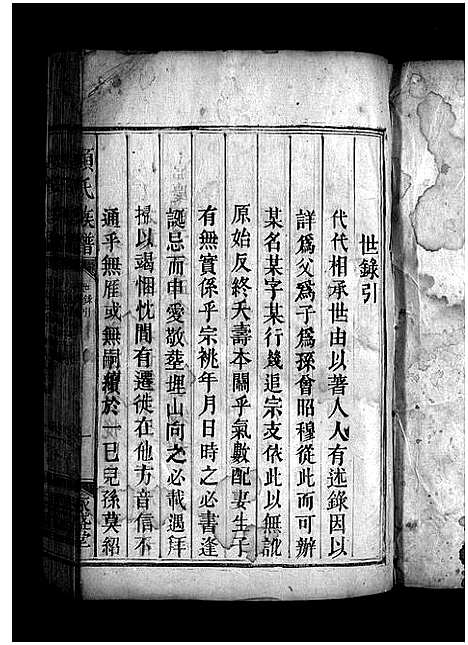 世錄引
代代相承世由以著人人有述錄因以
詳爲父爲子爲孫曾昭穆從此而可辦
某名某字某行幾追宗支依此以無訛
原始反終夭壽本關乎氣數配妻生子
有無實係乎宗祧年月日時之必書逢
誕忌而申愛敬塟埋山向之必載遇拜
掃以竭悃忱間有遷徙在他方音信不
通乎無雁或無嗣續於一已兒孫莫紹
氏族譜
世錄引
堂